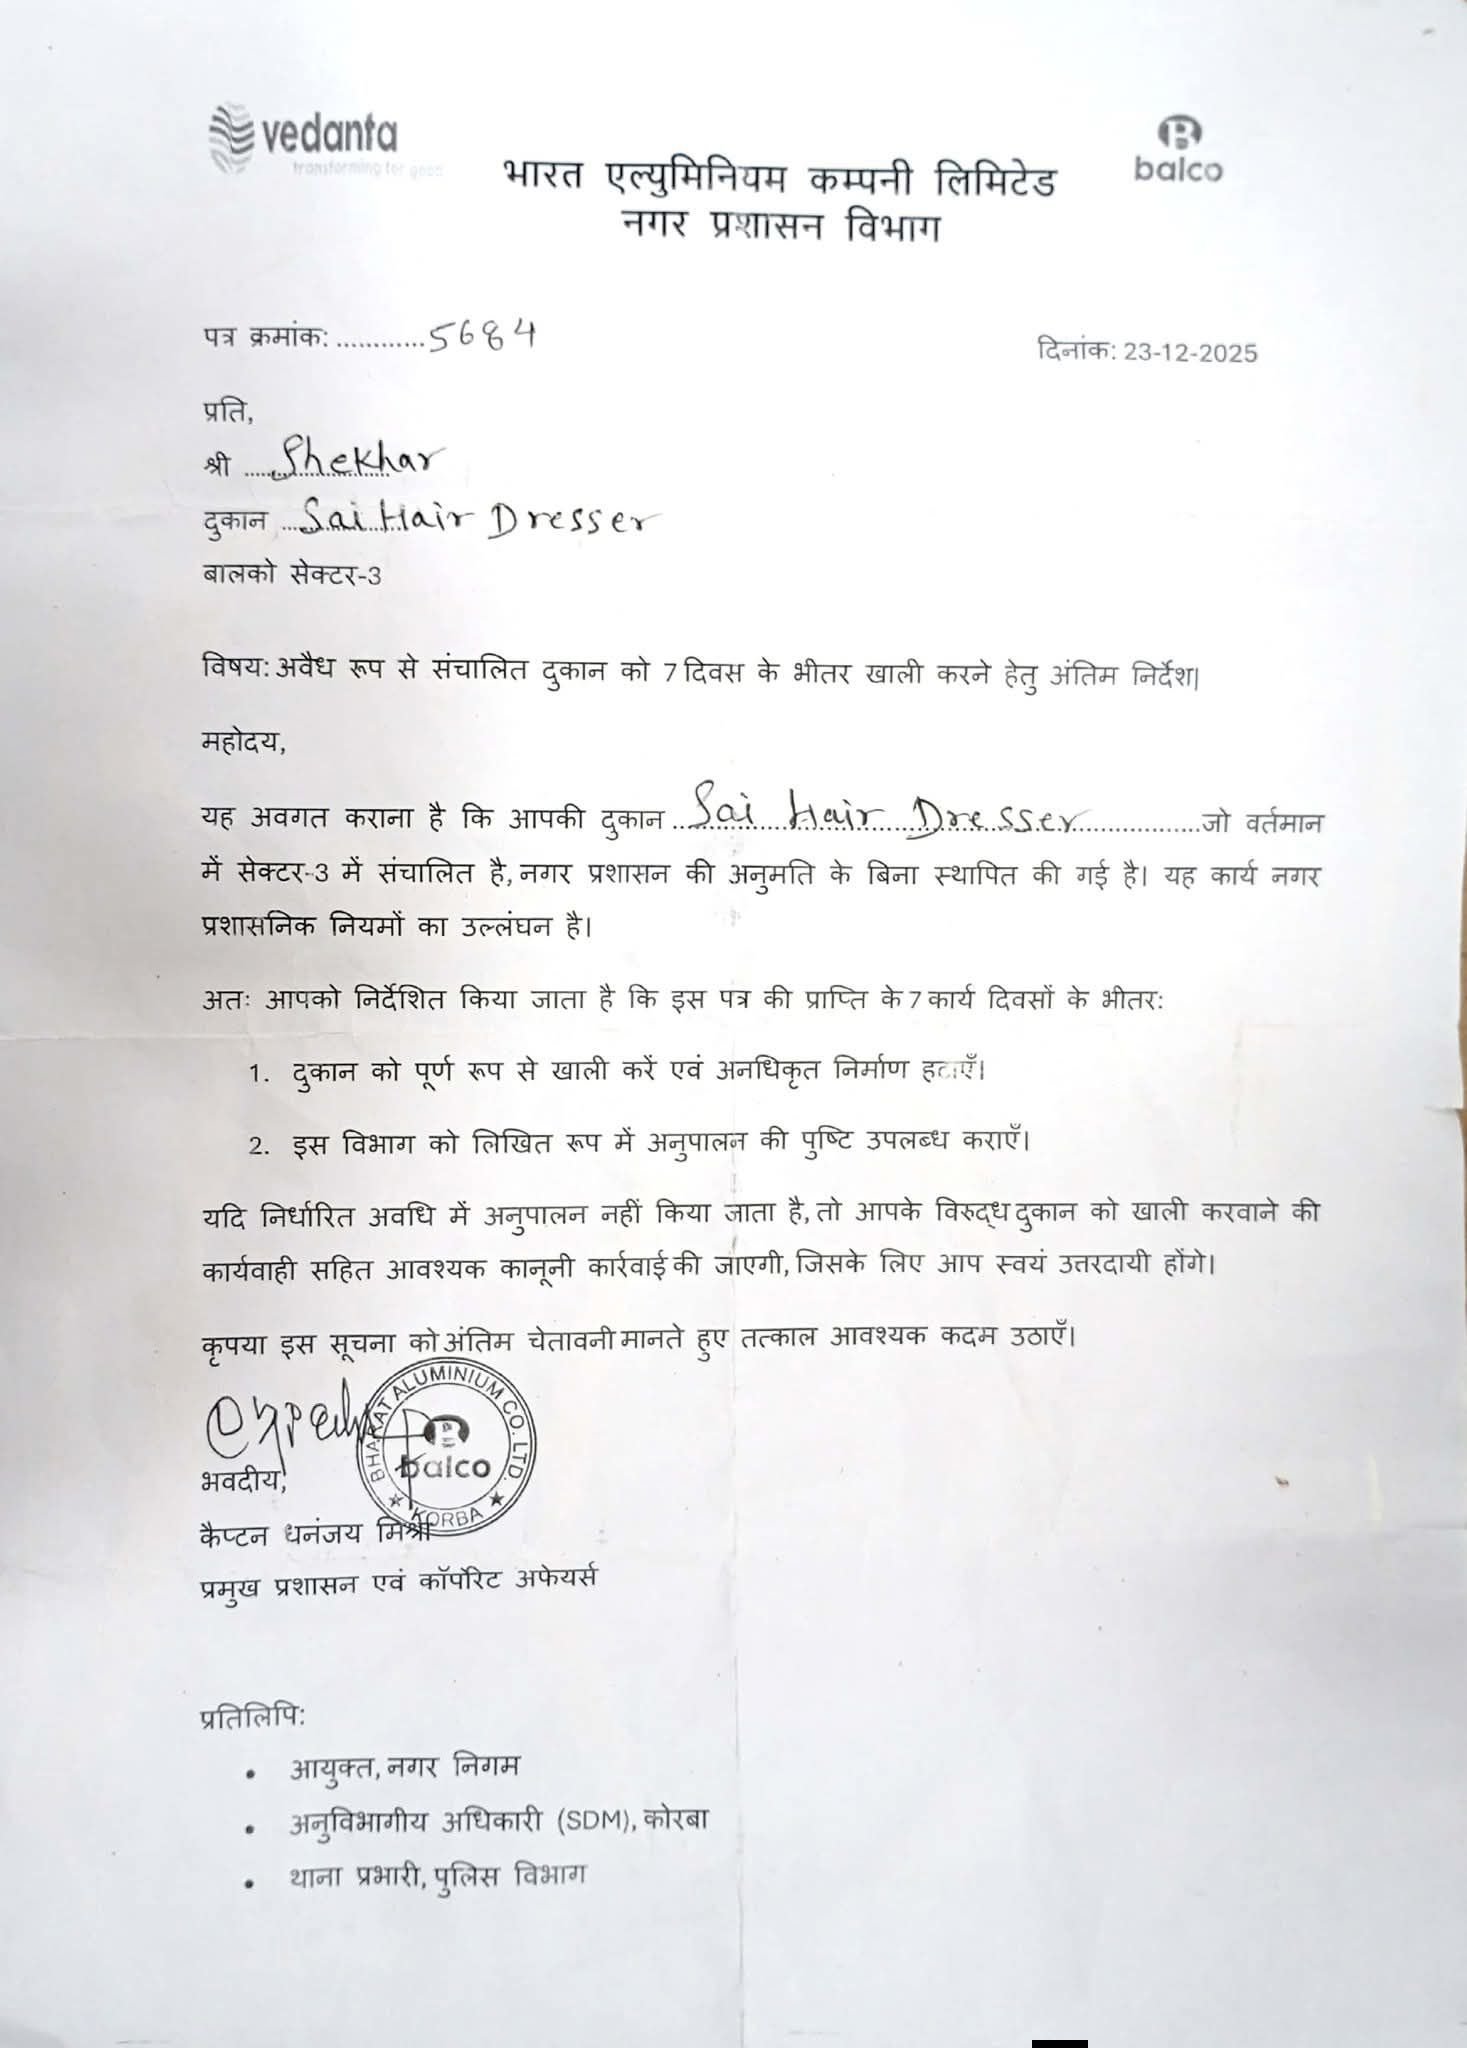 vedanta
transforming for good
balco
भारत एल्युमिनियम कम्पनी लिमिटेड
नगर प्रशासन विभाग
पत्र क्रमांक: ............5684
दिनांक: 23-12-2025
प्रति,
श्री ....Shekhar
दुकान ....Sai Hair Dresser
बालको सेक्टर-3
विषय: अवैध रूप से संचालित दुकान को 7 दिवस के भीतर खाली करने हेतु अंतिम निर्देश|
महोदय,
यह अवगत कराना है कि आपकी दुकान ...Sai Hair Dresser...............जो वर्तमान
में सेक्टर-3 में संचालित है, नगर प्रशासन की अनुमति के बिना स्थापित की गई है। यह कार्य नगर
प्रशासनिक नियमों का उल्लंघन है।
अतः आपको निर्देशित किया जाता है कि इस पत्र की प्राप्ति के 7 कार्य दिवसों के भीतर:
1. दुकान को पूर्ण रूप से खाली करें एवं अनधिकृत निर्माण हटाएँ।
2. इस विभाग को लिखित रूप में अनुपालन की पुष्टि उपलब्ध कराएँ।
यदि निर्धारित अवधि में अनुपालन नहीं किया जाता है, तो आपके विरुद्ध दुकान को खाली करवाने की
कार्यवाही सहित आवश्यक कानूनी कार्रवाई की जाएगी, जिसके लिए आप स्वयं उत्तरदायी होंगे।
कृपया इस सूचना को अंतिम चेतावनी मानते हुए तत्काल आवश्यक कदम उठाएँ।
BHARAT ALUMINIUM CO. LTD.
balco
★ KORBA ★
भवदीय,
कैप्टन धनंजय मिश्रा
प्रमुख प्रशासन एवं कॉर्पोरेट अफेयर्स
प्रतिलिपि:
• आयुक्त, नगर निगम
• अनुविभागीय अधिकारी (SDM), कोरबा
• थाना प्रभारी, पुलिस विभाग